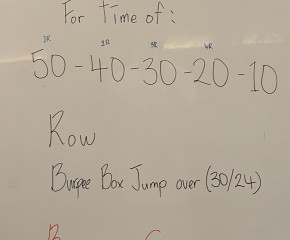 For Time of:
1R 2R 3R 4R
50-40-30-20-10
Row
Burpee Box Jump over (30/24)